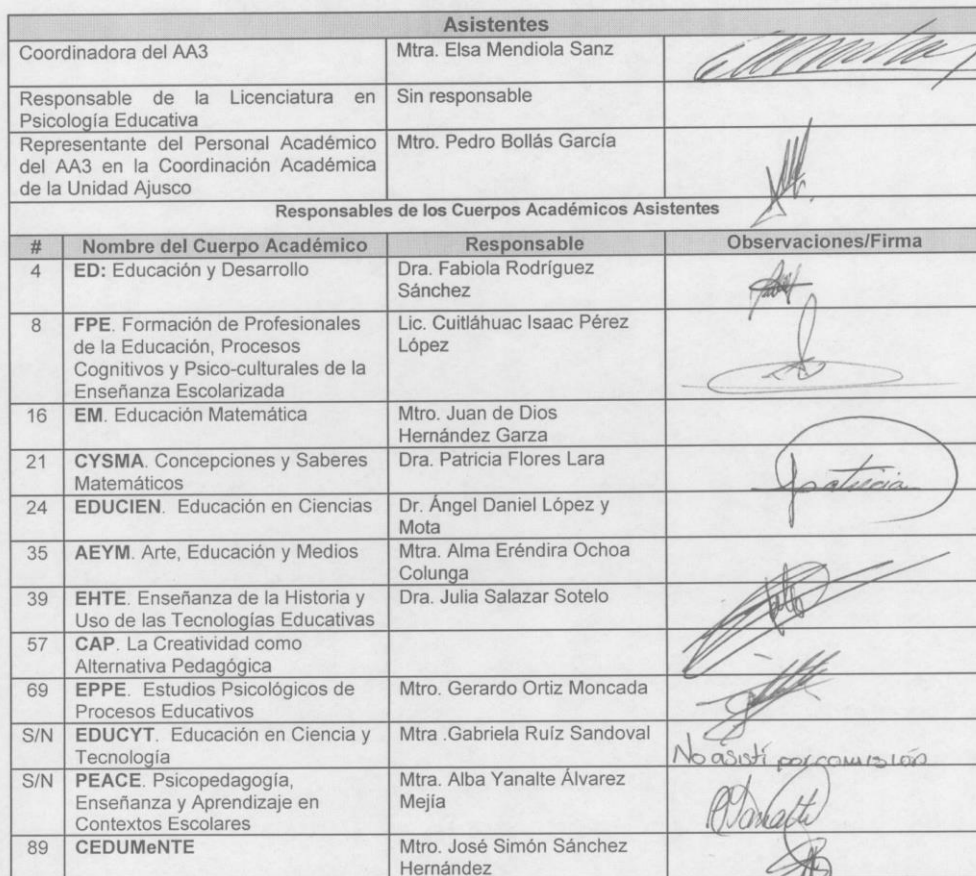 Asistentes
Coordinadora del AA3
Mtra. Elsa Mendiola Sanz
Responsable de la Licenciatura en
Psicología Educativa
Sin responsable
Representante del Personal Académico
del AA3 en la Coordinación Académica
de la Unidad Ajusco
Mtro. Pedro Bollás García
Responsables de los Cuerpos Académicos Asistentes
# Nombre del Cuerpo Académico Responsable Observaciones/Firma
4 ED: Educación y Desarrollo
Dra. Fabiola Rodríguez
Sánchez
8 FPE. Formación de Profesionales
de la Educación, Procesos
Cognitivos y Psico-culturales de la
Enseñanza Escolarizada
Lic. Cuitláhuac Isaac Pérez
López
16 EM. Educación Matemática
Mtro. Juan de Dios
Hernández Garza
21 CYSMA. Concepciones y Saberes
Matemáticos
Dra. Patricia Flores Lara
Patricia
24 EDUCIEN. Educación en Ciencias
Dr. Ángel Daniel López y
Mota
35 AEYM. Arte, Educación y Medios
Mtra. Alma Eréndira Ochoa
Colunga
39 EHTE. Enseñanza de la Historia y
Uso de las Tecnologías Educativas
Dra. Julia Salazar Sotelo
57 CAP. La Creatividad como
Alternativa Pedagógica
69 EPPE. Estudios Psicológicos de
Procesos Educativos
Mtro. Gerardo Ortiz Moncada
S/N EDUCYT. Educación en Ciencia y
Tecnología
Mtra .Gabriela Ruíz Sandoval
No asistí por comisión
S/N PEACE. Psicopedagogía,
Enseñanza y Aprendizaje en
Contextos Escolares
Mtra. Alba Yanalte Álvarez
Mejía
89 CEDUMeNTE
Mtro. José Simón Sánchez
Hernández